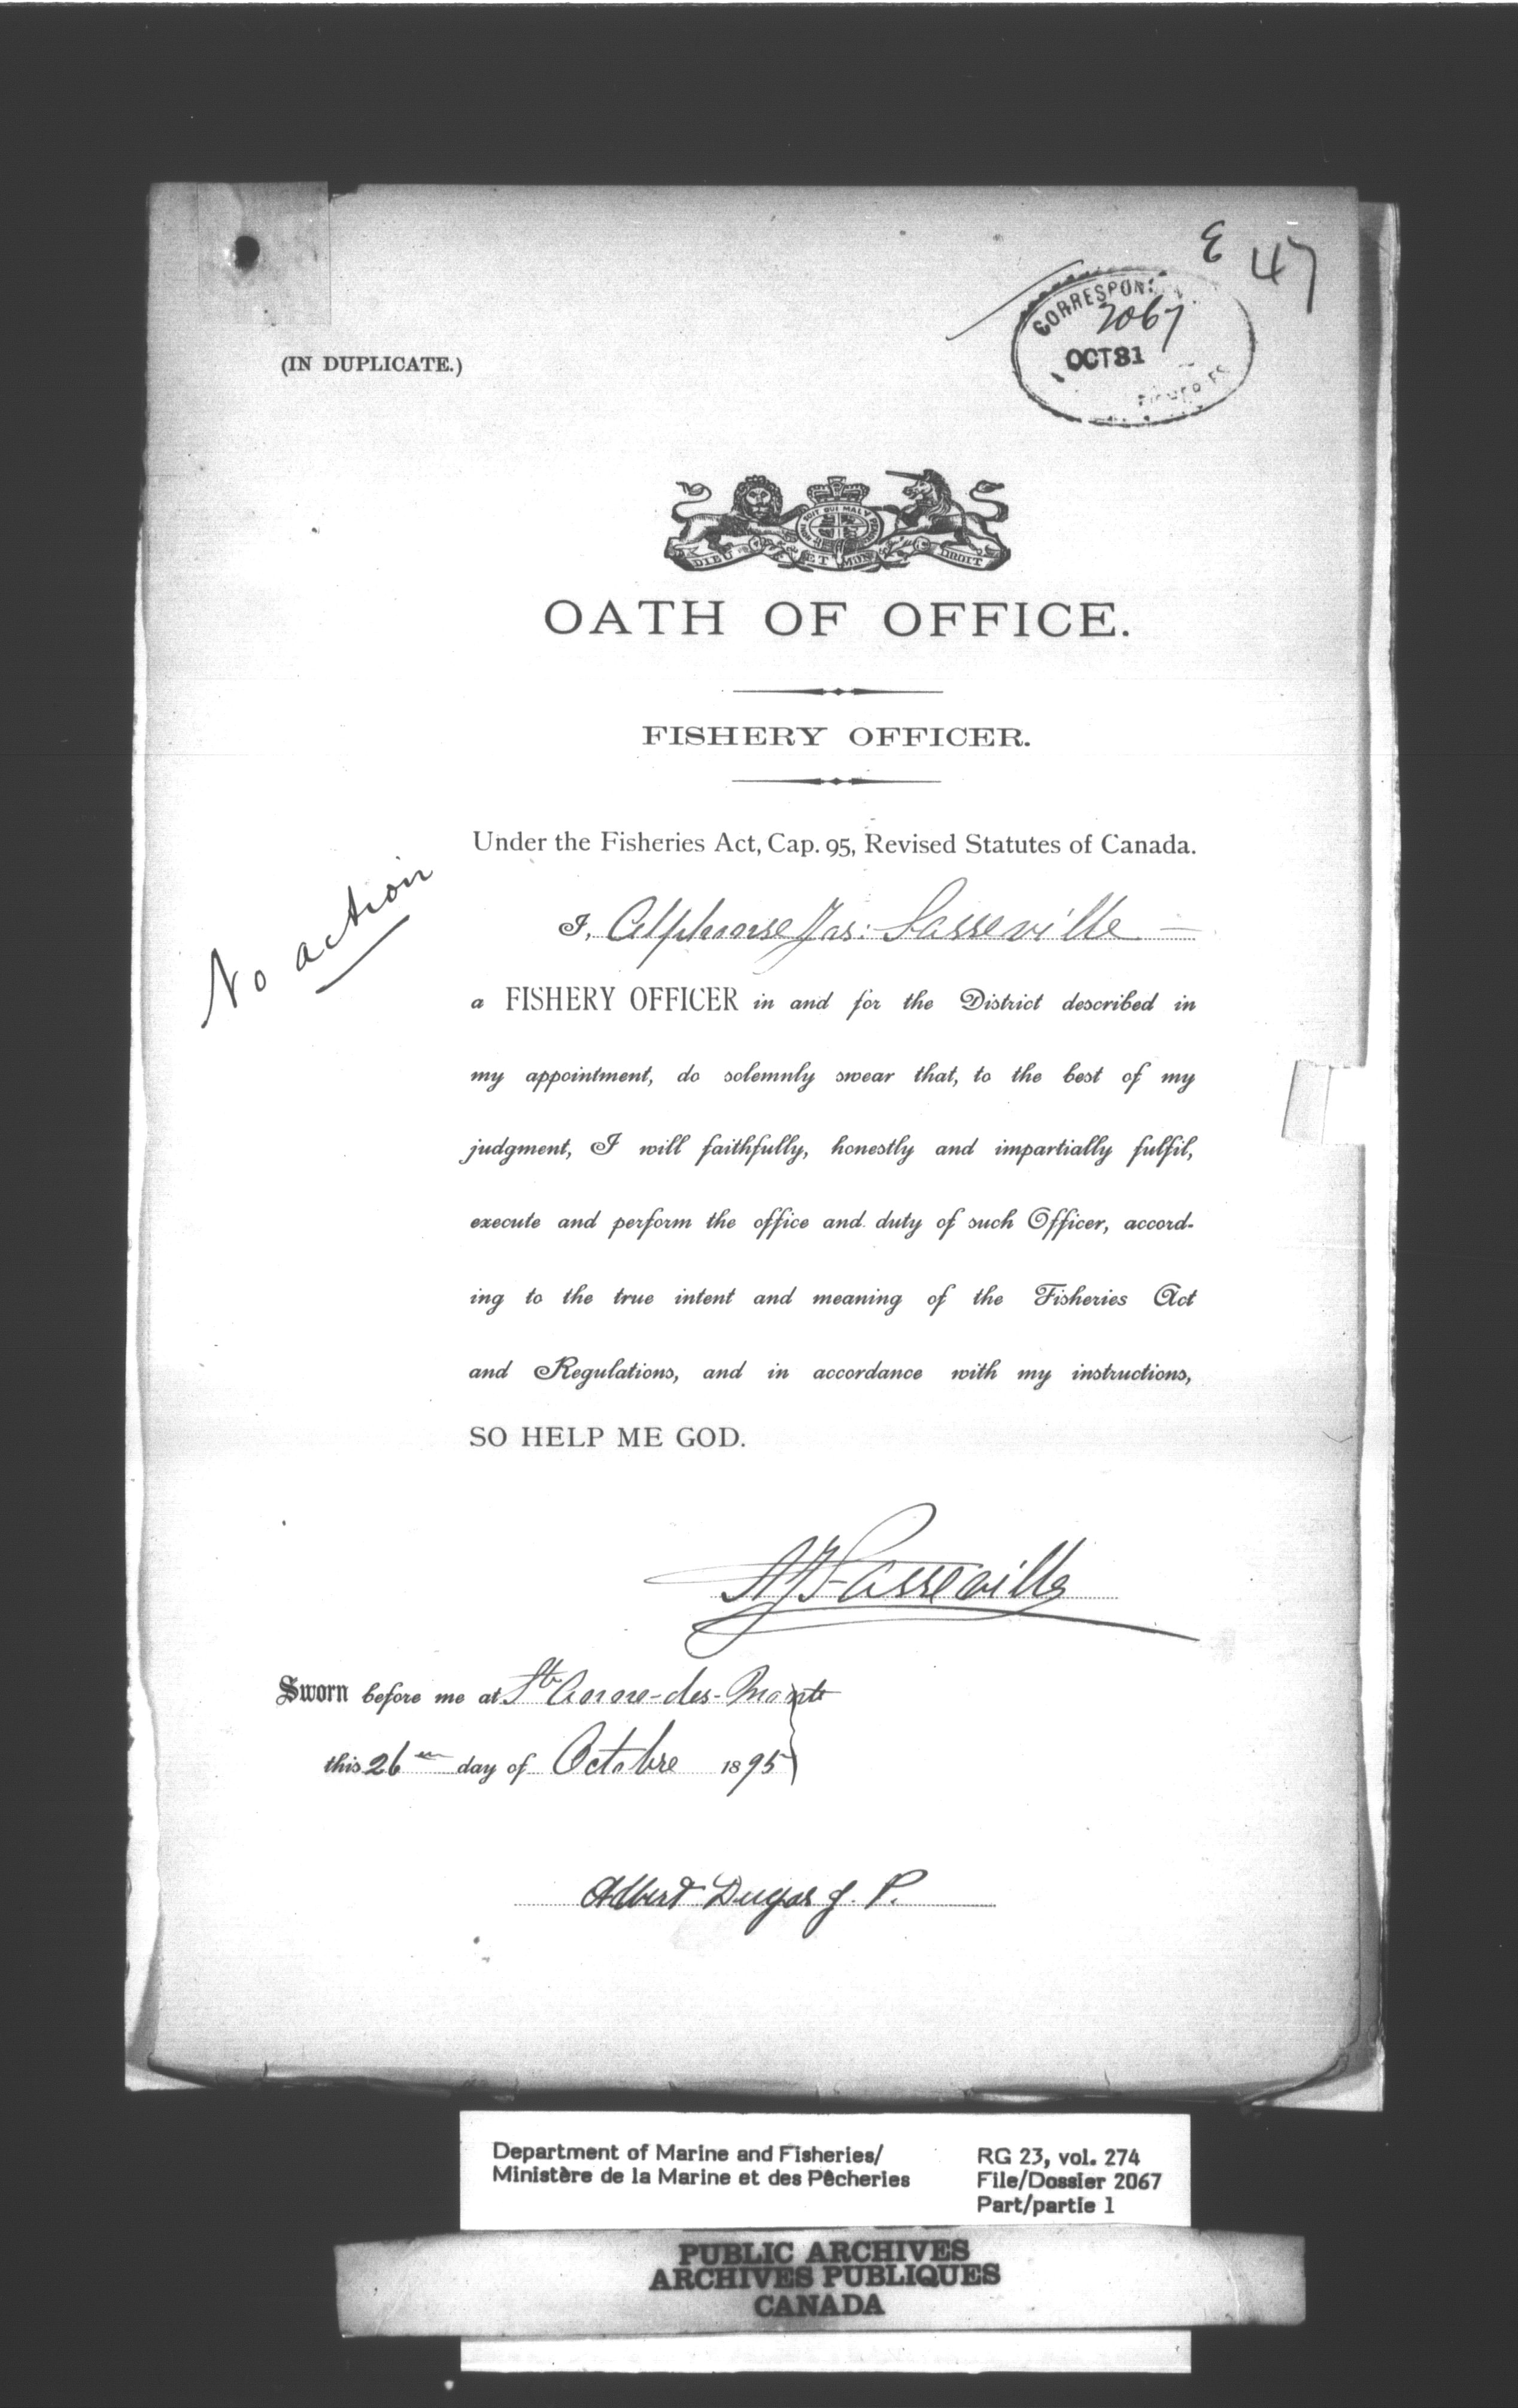 E 47
CORRESPON
2067
OCT 31
FISHERIES
(IN DUPLICATE.)
HONI SOIT QUI MAL Y PENSE
DIEU ET MON DROIT
OATH OF OFFICE.
FISHERY OFFICER.
Under the Fisheries Act, Cap. 95, Revised Statutes of Canada.
No action
I, Alphonse Jas: Lasseville
a FISHERY OFFICER in and for the District described in
my appointment, do solemnly swear that, to the best of my
judgment, I will faithfully, honestly and impartially fulfil,
execute and perform the office and duty of such Officer, accord-
ing to the true intent and meaning of the Fisheries Act
and Regulations, and in accordance with my instructions,
SO HELP ME GOD.
AJLasseville
Sworn before me at Ste Anne-des-Monts
this 26 day of Octobre 1895
Albert Dugas J. P.
Department of Marine and Fisheries/
Ministère de la Marine et des Pêcheries
RG 23, vol. 274
File/Dossier 2067
Part/partie 1
PUBLIC ARCHIVES
ARCHIVES PUBLIQUES
CANADA